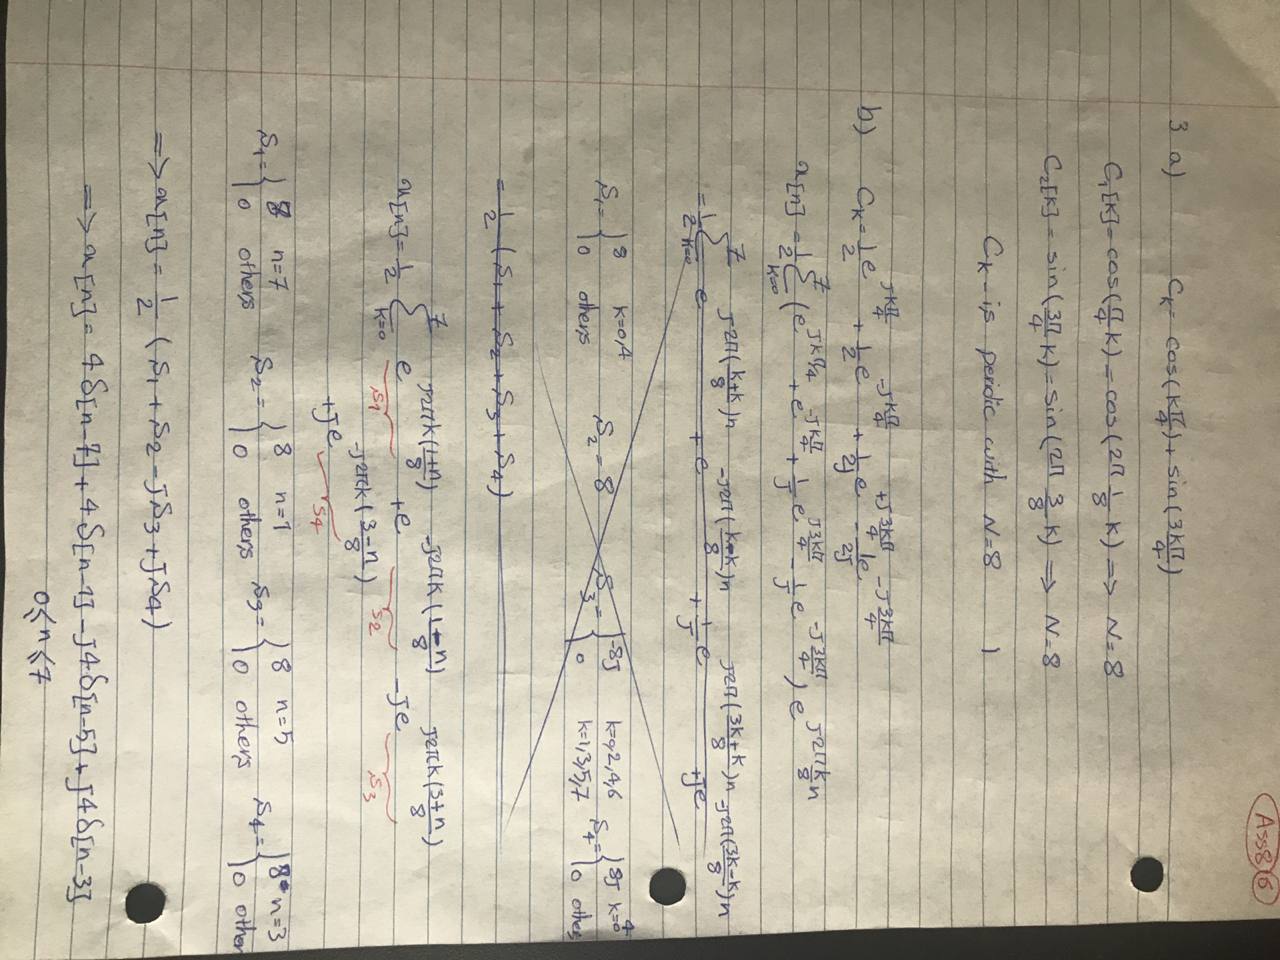 Ass8 6
3 a) C_K = cos(kπ/4) + sin(3kπ/4)
C_1[K] = cos(π/4 k) = cos(2π 1/8 k) => N=8
C_2[K] = sin(3π/4 k) = sin(2π 3/8 k) => N=8
C_K - is peridic with N=8
b) C_K = 1/2 e^{jkπ/4} + 1/2 e^{-jkπ/4} + 1/2j e^{+j3kπ/4} - 1/2j e^{-j3kπ/4}
x[n] = 1/2 Σ_{k=0}^{7} (e^{jkπ/4} + e^{-jkπ/4} + 1/j e^{j3kπ/4} - 1/j e^{-j3kπ/4}) e^{j2π k/8 n}
= 1/2 Σ_{k=0}^{7} e^{j2π((k+k)/8)n} + e^{-j2π((k-k)/8)n} + 1/j e^{j2π((3k+k)/8)n} + je^{-j2π((3k-k)/8)n}
S_1 = { 8 k=0,4 0 others S_2 = 8 S_3 = { -8j k=0,2,4,6 0 k=1,3,5,7 S_4 = { 8j k=0 4 0 others
= 1/2 (S_1 + S_2 + S_3 + S_4)
x[n] = 1/2 Σ_{k=0}^{7} e^{j2πk((1+n)/8)} + e^{-j2πk((1-n)/8)} - je^{j2πk((3+n)/8)}
S1 S2 S3
+je^{-j2πk((3-n)/8)}
S4
S_1 = { 8 n=7 0 others S_2 = { 8 n=1 0 others S_3 = { 8 n=5 0 others S_4 = { 8 n=3 0 other
=> x[n] = 1/2 (S_1 + S_2 - jS_3 + jS_4)
=> x[n] = 4δ[n-7] + 4δ[n-1] - j4δ[n-5] + j4δ[n-3]
0≤n≤7